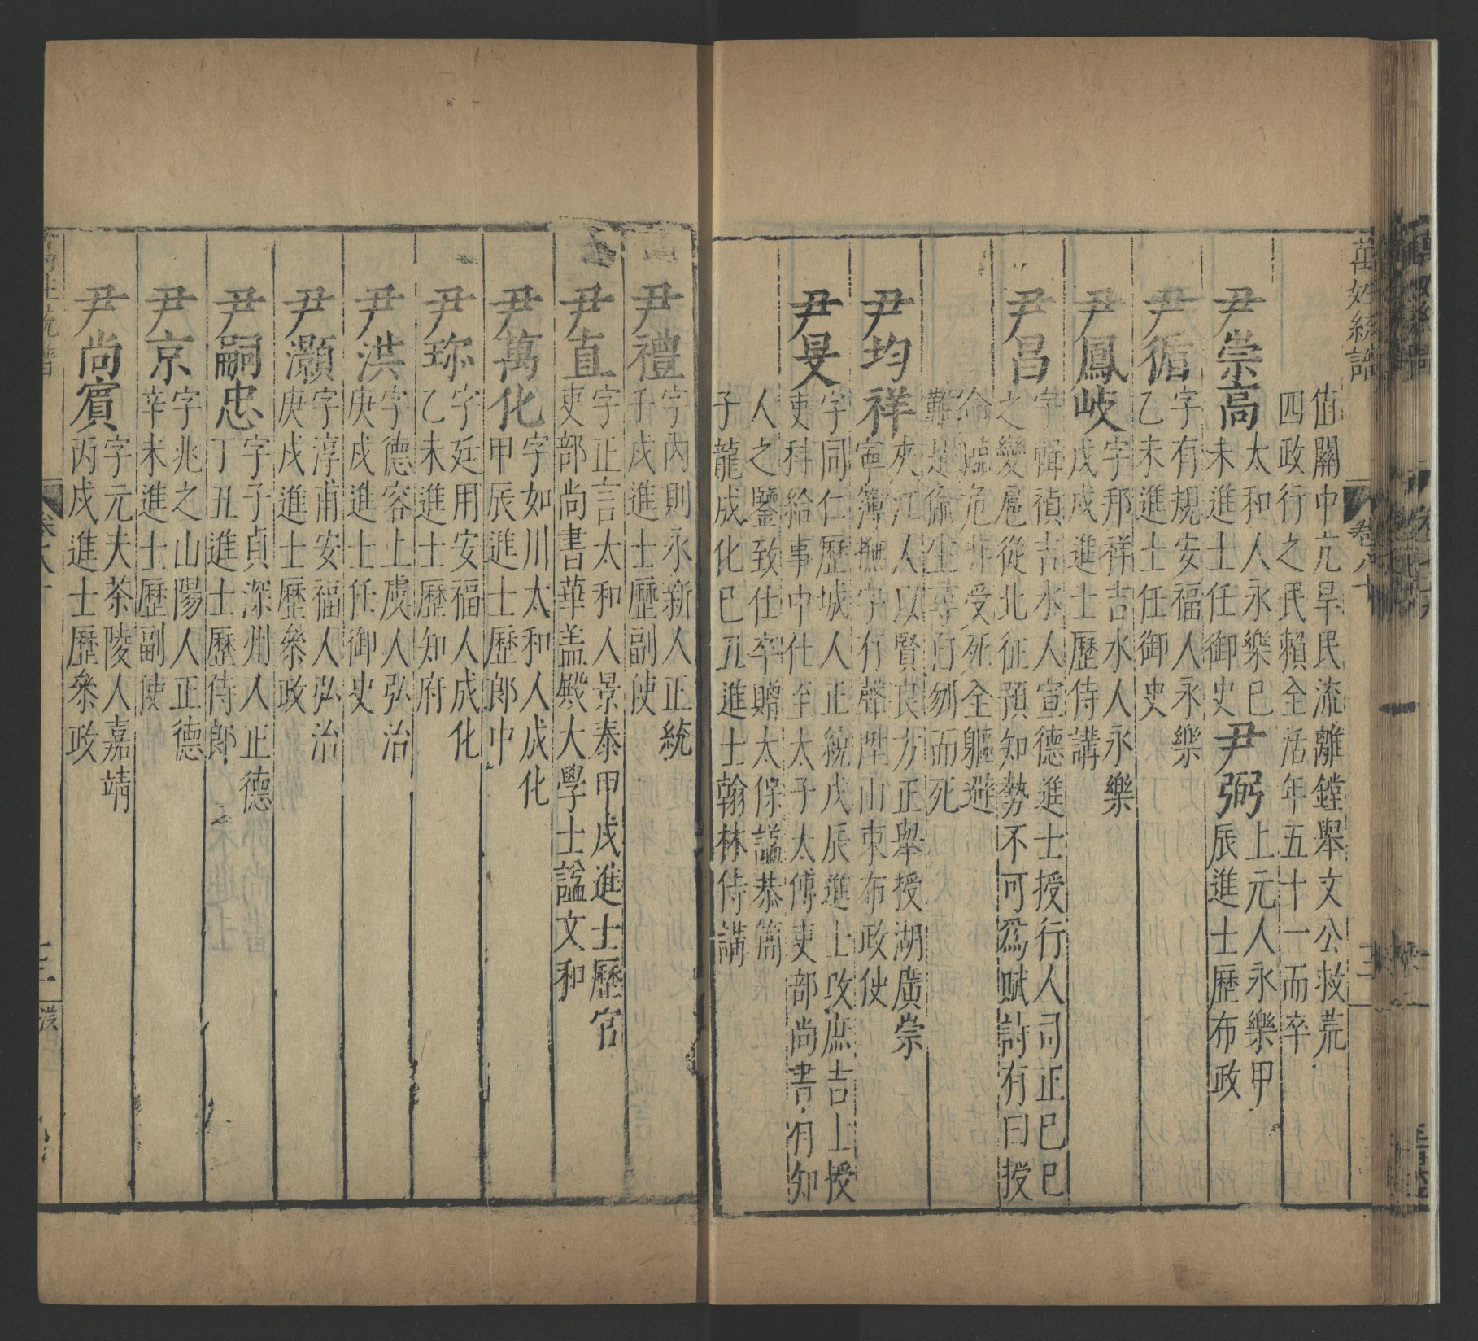 萬姓統譜
卷八十
三
值關中亢旱民流離鏜舉文公救荒
四政行之民賴全活年五十一而卒
尹崇高
太和人永樂己
未進士任御史
尹弼
上元人永樂甲
辰進士歷布政
尹循
字有規安福人永樂
乙未進士任御史
尹鳳岐
字邦祥吉水人永樂
戊戌進士歷侍講
尹昌
字輯禎吉水人宣德進士授行人司正己巳
之變扈從北征預知勢不可爲賦詩有曰授
命臨危非受死全軀避
難是偷生尋自刎而死
尹均祥
夾江人以賢良方正舉授湖廣崇
寧簿撫字有聲陞山東布政使
尹旻
字同仁歷城人正統戊辰進士改庶吉士授
吏科給事中仕至太子太傅吏部尚書有知
人之鑒致仕卒贈太保謚恭簡
子龍成化己丑進士翰林侍講
尹禮
字內則永新人正統
壬戌進士歷副使
尹直
字正言太和人景泰甲戌進士歷官
吏部尚書華盖殿大學士謚文和
尹萬化
字如川太和人成化
甲辰進士歷郎中
尹珎
字廷用安福人成化
乙未進士歷知府
尹洪
字德容上虞人弘治
庚戌進士任御史
尹灝
字淳甫安福人弘治
庚戌進士歷叅政
尹嗣忠
字子貞深州人正德
丁丑進士歷侍郎
尹京
字兆之山陽人正德
辛未進士歷副使
尹尚賓
字元夫茶陵人嘉靖
丙戌進士歷叅政